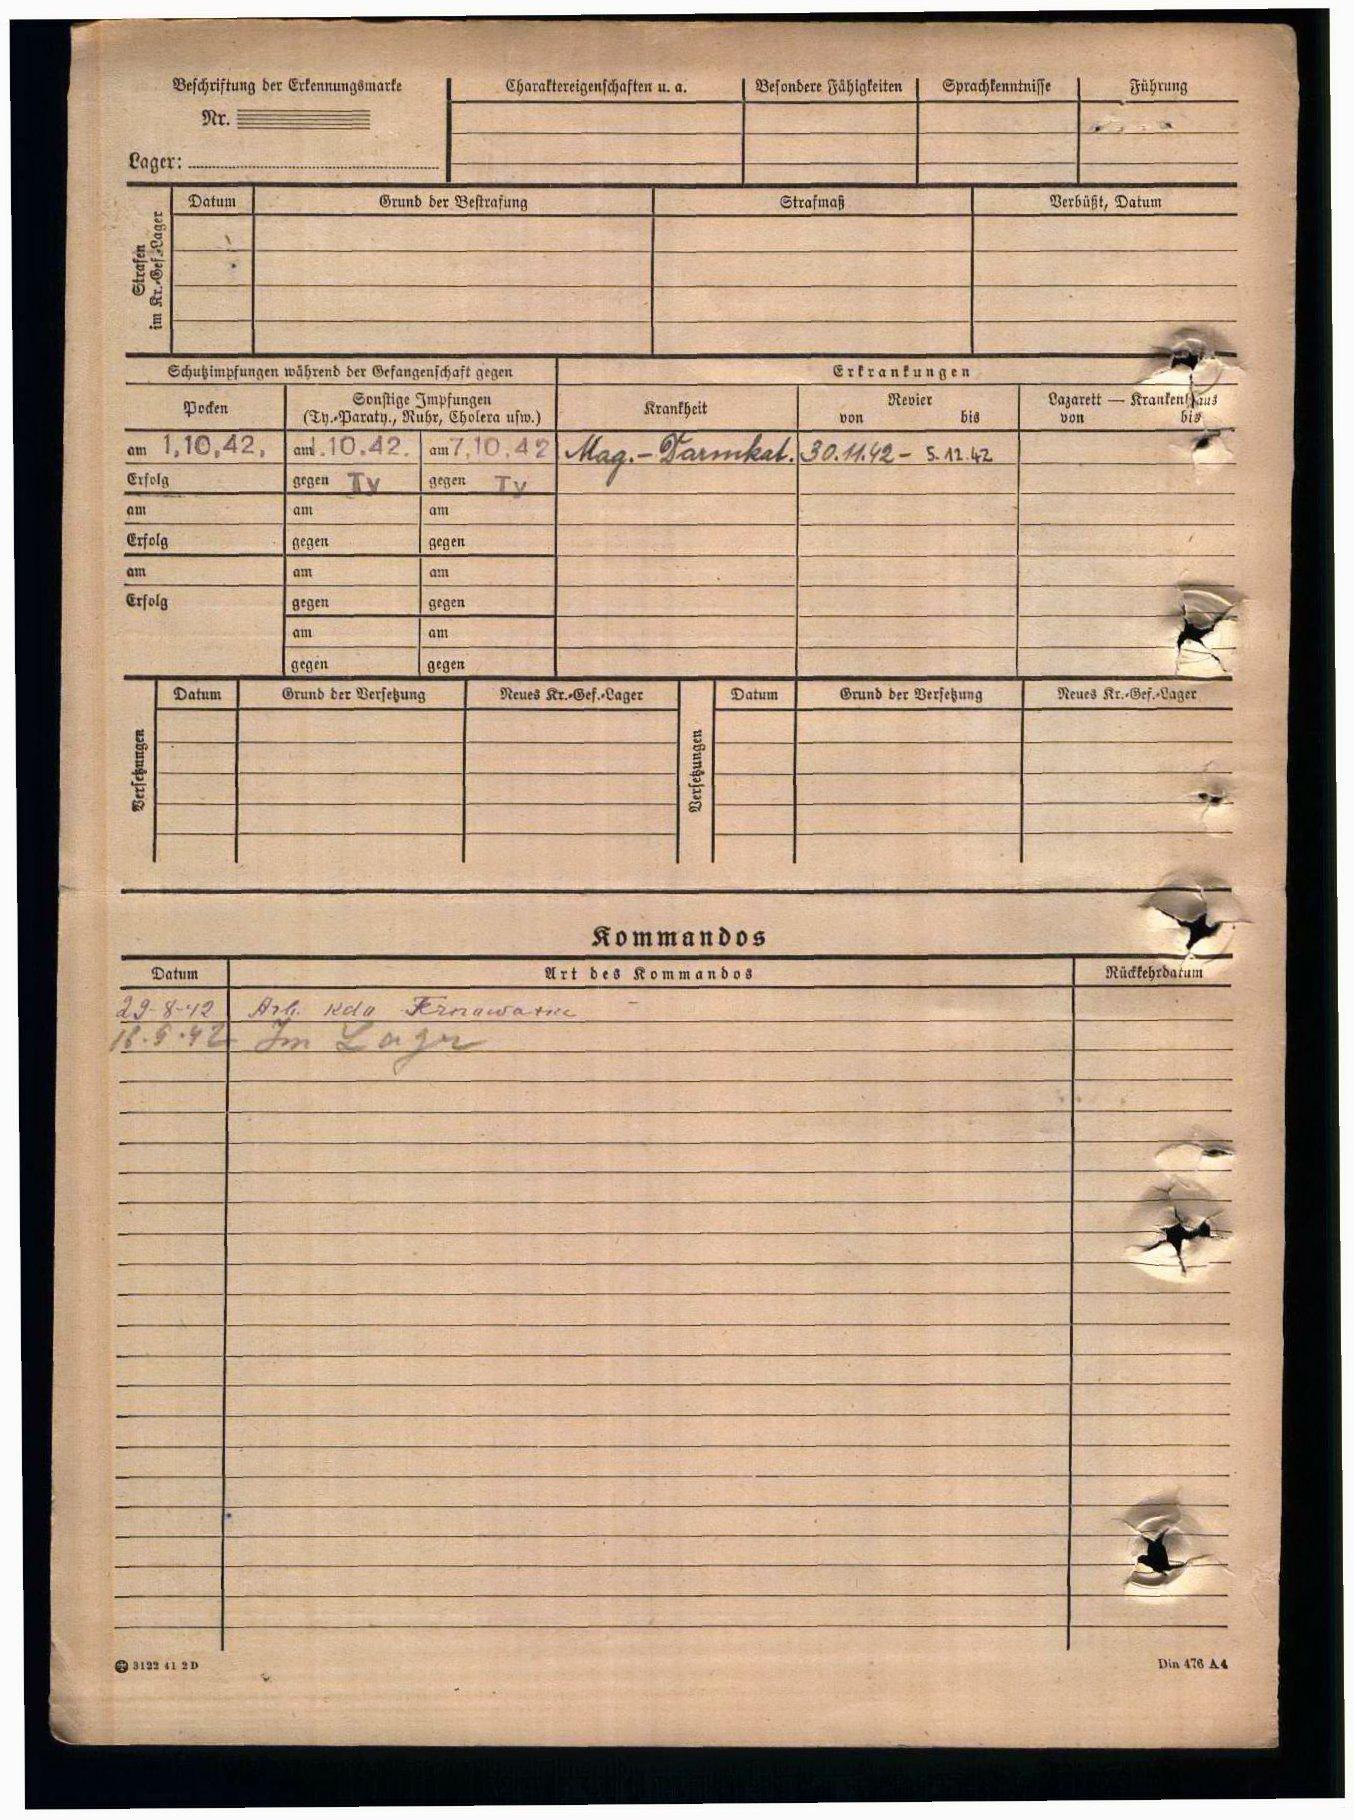 Beschriftung der Erkennungsmarke
Nr.
Lager:
Charaktereigenschaften u. a. Besondere Fähigkeiten Sprachkenntnisse Führung
Strafen
im Kr.-Gef.-Lager
Datum Grund der Bestrafung Strafmaß Verbüßt, Datum
Schutzimpfungen während der Gefangenschaft gegen Erkrankungen
Pocken Sonstige Impfungen
(Ty.-Paraty., Ruhr, Cholera usw.)
Krankheit Revier Lazarett — Krankenhaus
von bis von bis
am 1.10.42. am 1.10.42. am 7.10.42 Mag.- Darmkat. 30.11.42 - 5.12.42
Erfolg gegen Ty gegen Ty
am am am
Erfolg gegen gegen
am am am
Erfolg gegen gegen
am am
gegen gegen
Versetzungen Datum Grund der Versetzung Neues Kr.-Gef.-Lager Versetzungen Datum Grund der Versetzung Neues Kr.-Gef.-Lager
Kommandos
Datum Art des Kommandos Rückkehrdatum
29-8-42 Arb. Kdo
Im Lager
3122 41 2D Din 476 A4